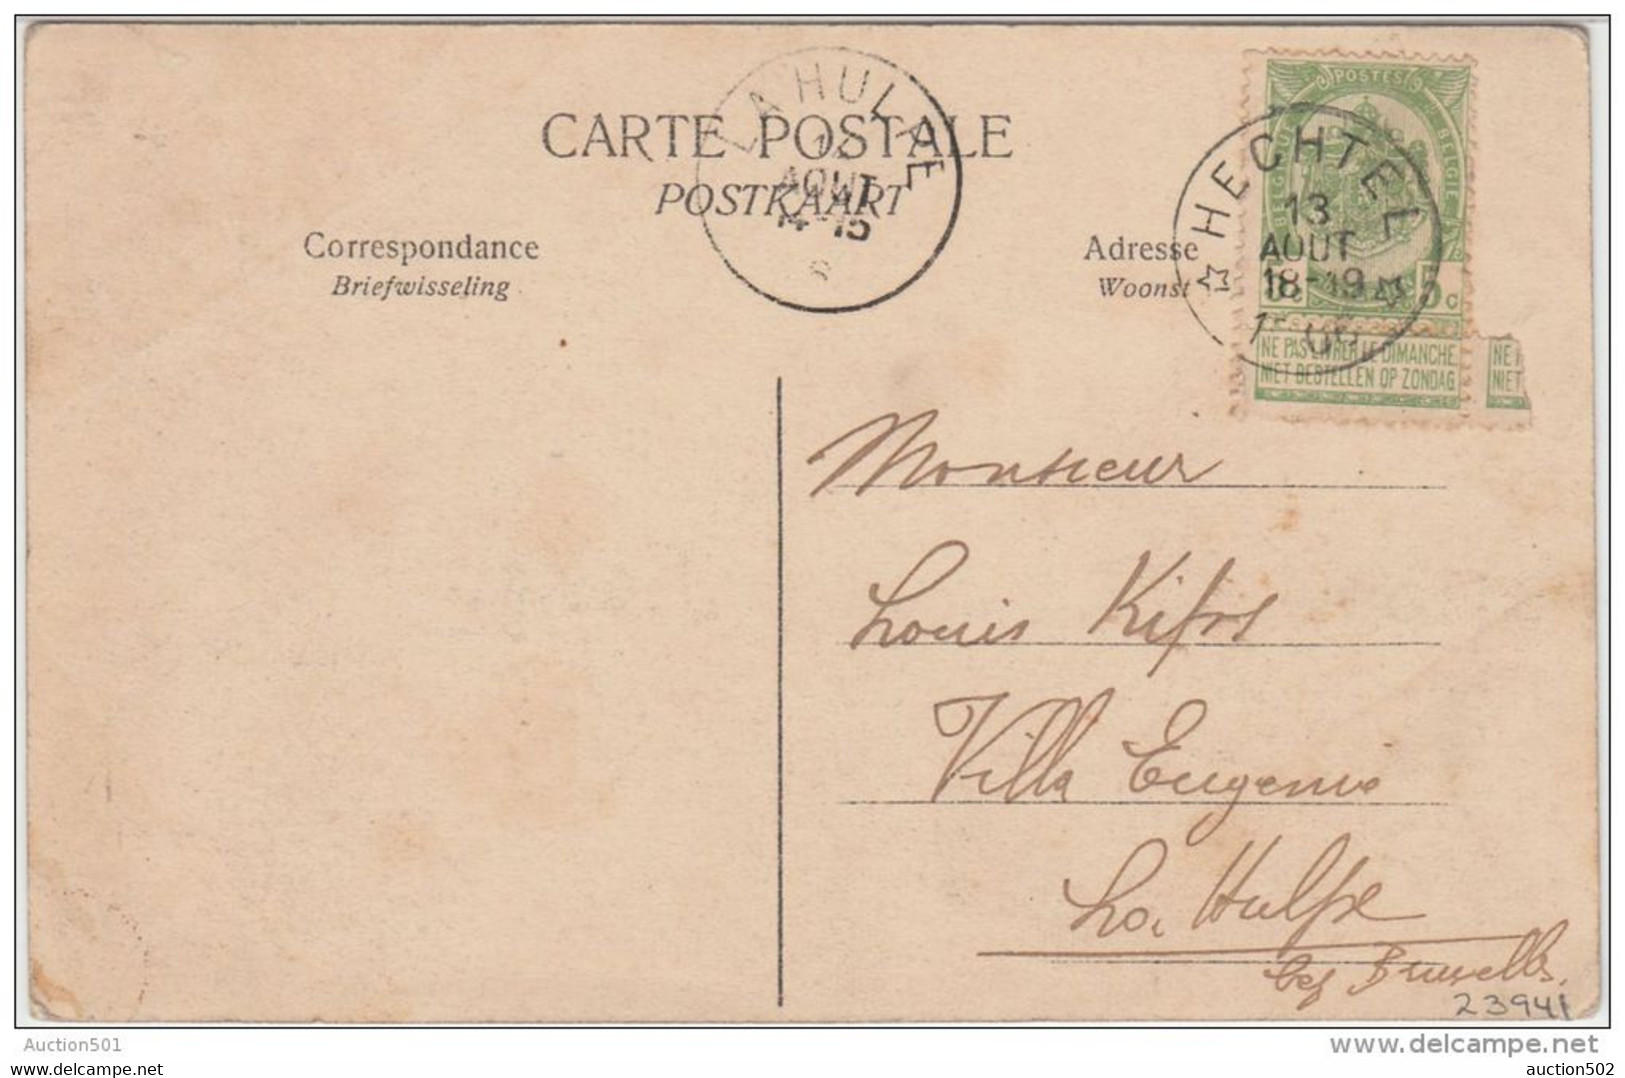 LA HULPE
AOUT
14-15
CARTE POSTALE
POSTKAART
Correspondance
Briefwisseling
Adresse
Woonst
POSTES
BELGIQUE
BELGIE
5c
HECHTEL
13
AOUT
18-19
NE PAS LIVRER LE DIMANCHE
NIET BESTELLEN OP ZONDAG
NE
NIET
Monsieur
Louis
Villa Eugenie
La Hulpe
Bruxelles
23941
Auction501
www.delcampe.net
auction502